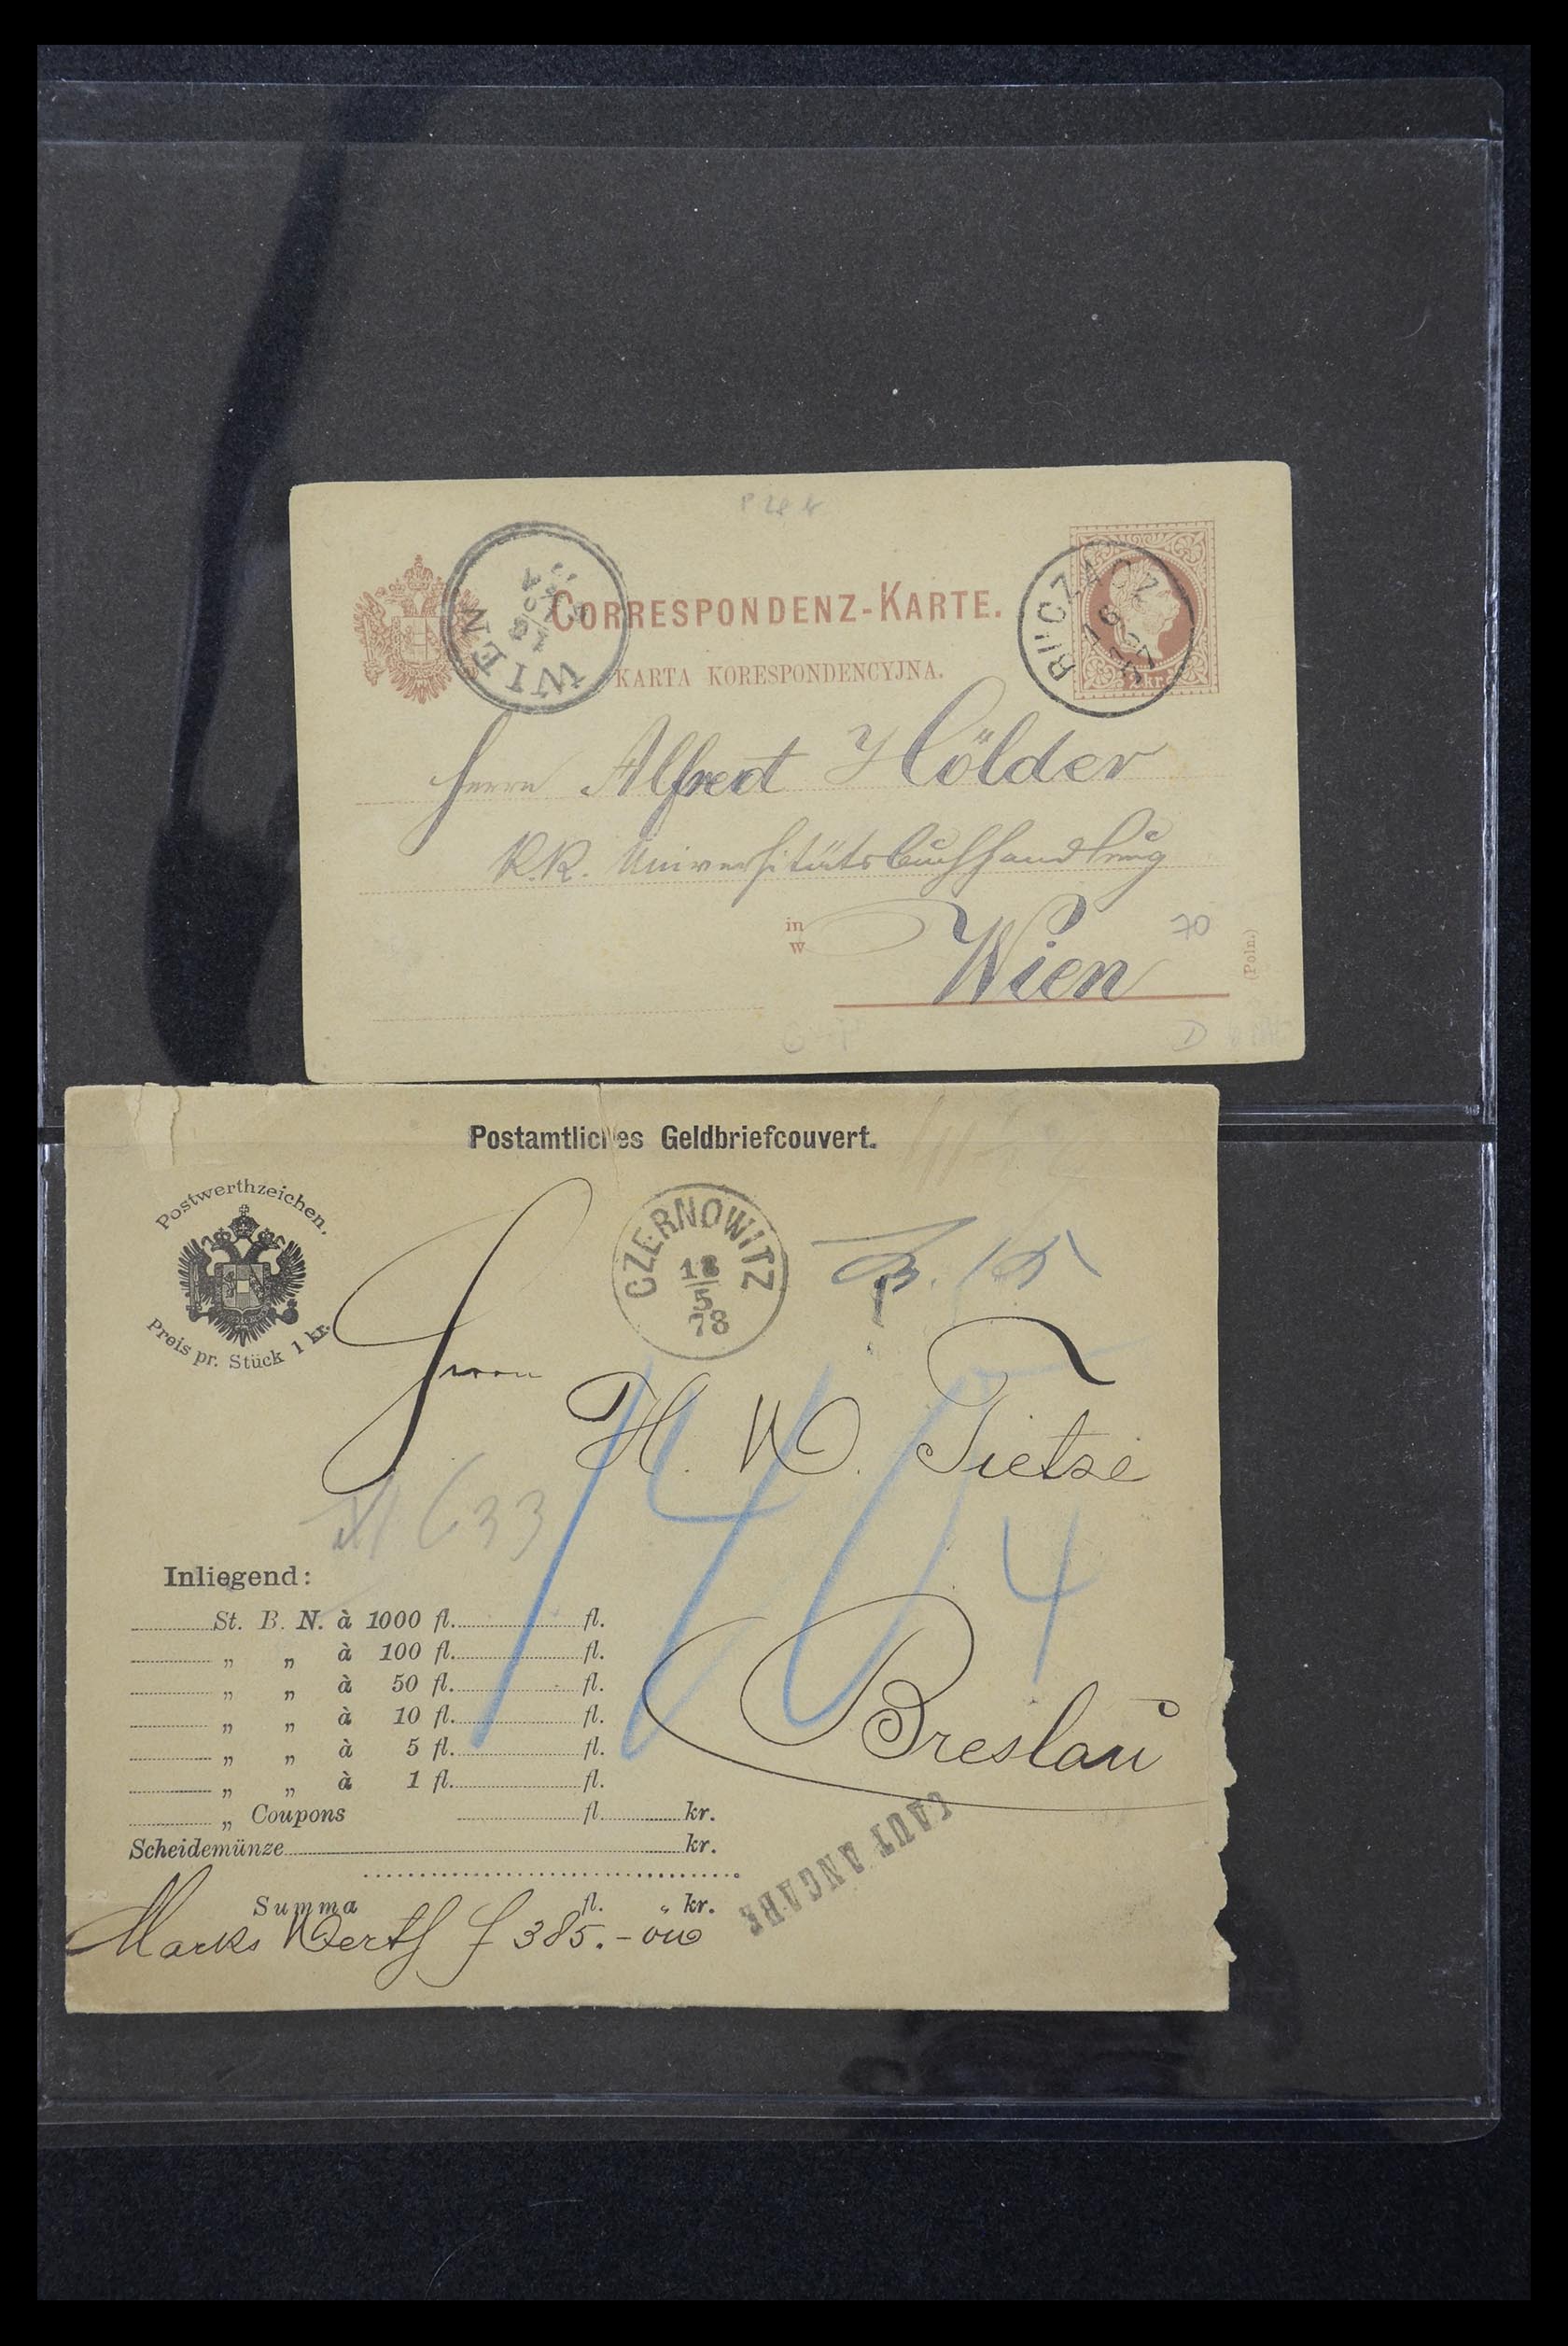 CORRESPONDENZ-KARTE.
KARTA KORESPONDENCYJNA.
WIEN
2 kr.
Herrn Alfred Hölder
K.K. Universitätsbuchhandlung
in
w
Wien
70
(Poln.)
D
Postamtliches Geldbriefcouvert.
Postwerthzeichen.
Preis pr. Stück 1 kr.
CZERNOWITZ
18
5
78
Herrn
H. W. Tietze
633
4
Breslau
Inliegend:
St. B. N. à 1000 fl. fl.
„ „ à 100 fl. fl.
„ „ à 50 fl. fl.
„ „ à 10 fl. fl.
„ „ à 5 fl. fl.
„ „ à 1 fl. fl.
„ Coupons fl. kr.
Scheidemünze kr.
Summa fl. „ kr.
LAUT ANGABE
Marks Werth f 385.-